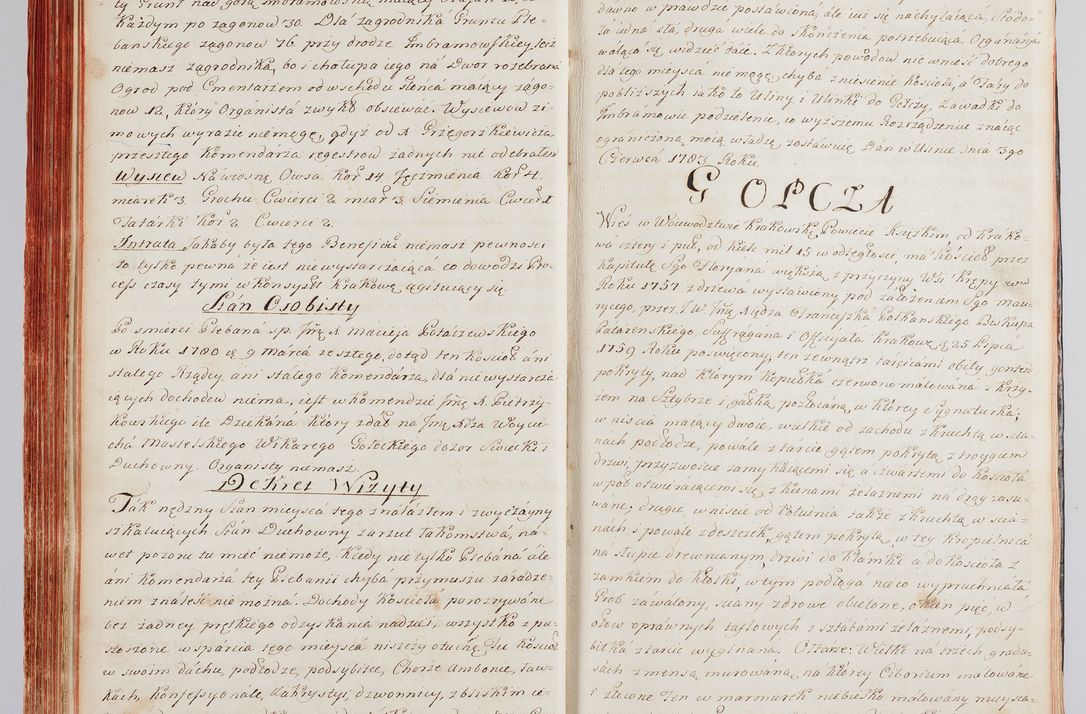 ty Grunt nad górą Imbramowską maiący Staian 12, w
Każdym po zagonow 30. Dla zagrodnika Gruntu Ple-
banskiego zagonow 76. przy drodze Imbramowskiey, lecz
niemasz zagrodnika, bo i chałupa iego ná Dwor rozebrana
Ogrod pod Cmentarzem od wschodu słońca maiący zágo-
now 12, ktory Organistá zwykł obsiewać. Wysiewow zi-
mowych wyrazić niemogę, gdyż od X Grzegorzkiewicza
przeszłego Komendarza regestrow żadnych nie odebrałem
Wysiew Ná wiosnę Owsa Kor 14 Jęczmienia Kor 4.
miarek 3. Grochu Cwierci 2 miar 3. Siemienia Cwierć 1
Tatarki Kor 2. Cwierci 2.
Intrata Jakaby była tego Beneficiu niemasz pewności
to tylko pewná że iest niewystarczaiącá co dowodzi Pro-
cess czasy tymi w Konsystł Krakowł agituiący się
Stán Osobisty
Po smierci Plebana sp. Jmę X Macieja Potoczewskiego
w Roku 1780 d 9 Marca zeszłego, dotąd ten Kościoł áni
stałego Rządcy áni stałego Komendárza, dlá niewystarcza
iących dochodow niema, iest w Komendzie Jmę X. Pietrzy-
kowskiego Dziekána Ktory zdał ná Jmę Xdza Woycie-
chá Masielskiego Wikarego Gołeckiego dozor Swiecki i
Duchowny. Organisty niemasz.
Dekret Wizyty
Ták nędzny Stan mieyscá tego znalazłem i zwyczayny
szkaluiących Stán Duchowny zarzut łakomstwá, ná-
wet pozoru tu mieć niemoże, Kiedy nie tylko Plebáná ále
áni Komendarzá tey Plebanii chyba przymusiu záradze-
niem ználeść nie można. Dochody Kościoła porozrywáne
bez żadney prętkiego odzyskania nadziei, wszystko zpu-
stoszone wsparcia tego mieysca niszczy otuchę. Tu Kościoł
w swoim dachu, podłodze, podsybitce, Chorze Ambonie, ław-
kách, Konfessyonale, Zakrystyi, dzwonnicy, zbliskim ie-
dawno w prawdzie postáwioná, ale iuż się nachylaiącá, Stodo-
ła iedná stá, drugá wiele do skończenia potrzebuiąca, Organaria
waląca się widzieć dáie. Z których powodow nic wnieść dobrego
dla tego mieyscá nie mogę, chyba zniesienie Kosciołá, á Fary do
pobliższych iáko to Uliny i Ulinki do Gołczy, Zawadki do
Imbramowic podzielenie, co wyższemu Rozrządzeniu znaiąc
ograniczoná moią władzą zostáwuię Dán w Ulinie dnia 13go
Czerwca 1783 Roku.
G OŁCZA
Wieś w Woiewodztwie Krákowsł, Powiecie Xiązkim, od Krako-
wa cztery i puł, od Kielc mil 15 w odległości, má Kościoł przez
Kapitułę Sgo Floryana większą z przyczyny Wsi Krępy w
Roku 1757 z drzewá wystawiony pod założeniem Sgo Mau-
rycego, przez J W Jmę Xiędza Franciszka Potkańskiego Biskupa
Patareńskiego, Suffragána i Officyała Krakowł d 25 Lipca
1759 Roku poświęcony, ten zewnątrz tarcicami obity gontem
pokryty, nad Ktorym Kopułká czerwono malowana z Krzy-
żem na Sztybrze i gałką pozłacaną, w Ktorey Sygnaturká;
wniścia maiący dwoie, wielkie od zachodu z Kruchtą w ścia-
nach podłodze, powale z tarcic gątem pokrytą z troygiem
drzwi, przyzwoicie zamykaiącemi się, a czwartemi do Kościołá
wpoł otwieraiącemi się, z Kunami żelaznemi na drąg zasu-
wanę, drugie, wniście od Południa także z Kruchtą w ścia-
nach i powale zdeszczek, gątem pokrytą, w tey Kropielnicá
na słupie drewnianym, drzwi do Klamki a do Kościoła z
zamkiem do Klotki, w tym podłoga nieco wypruchniałá
Grob záwalony, ściany zdrowe obielone, okien pięć, w
ołow oprawnych taflowych z sztábami żelaznemi, podsy-
bitka z tarcic wyginana. Ołtarze: Wielki na trzech gradu-
sách z mensą murowaną, na ktorey Ciborium malowáne
i złocone Ten w marmurek niebiesko malowány mieysca-